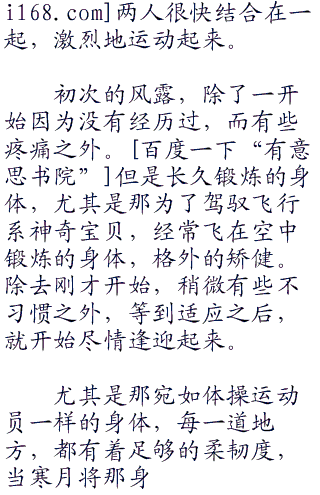 i168.com]两人很快结合在一
起，激烈地运动起来。
初次的风露，除了一开
始因为没有经历过，而有些
疼痛之外。[百度一下“有意
思书院”]但是长久锻炼的身
体，尤其是那为了驾驭飞行
系神奇宝贝，经常飞在空中
锻炼的身体，格外的矫健。
除去刚才开始，稍微有些不
习惯之外，等到适应之后，
就开始尽情逢迎起来。
尤其是那宛如体操运动
员一样的身体，每一道地
方，都有着足够的柔韧度，
当寒月将那身